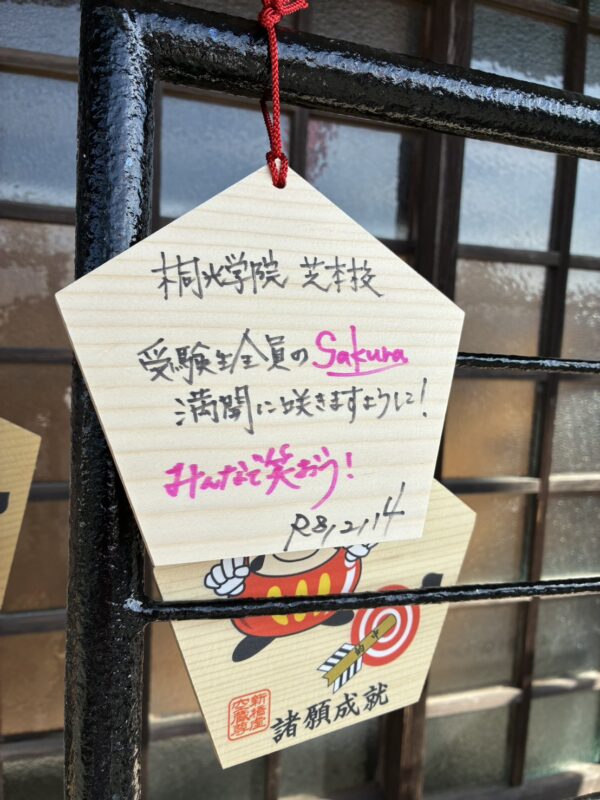 桐光学院 芝本校
受験生全員のSakura
満開に咲きますように！
みんなで笑おう！
R8,2,14
的中
諸願成就